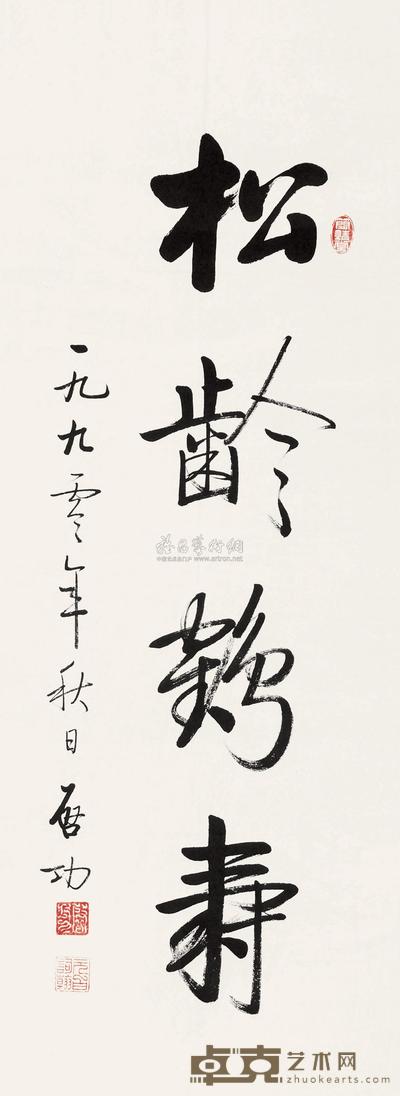 松齡鹤寿
一九九零年秋日 启功
雅昌艺术网
www.artron.net
卓克艺术网
zhuokearts.com